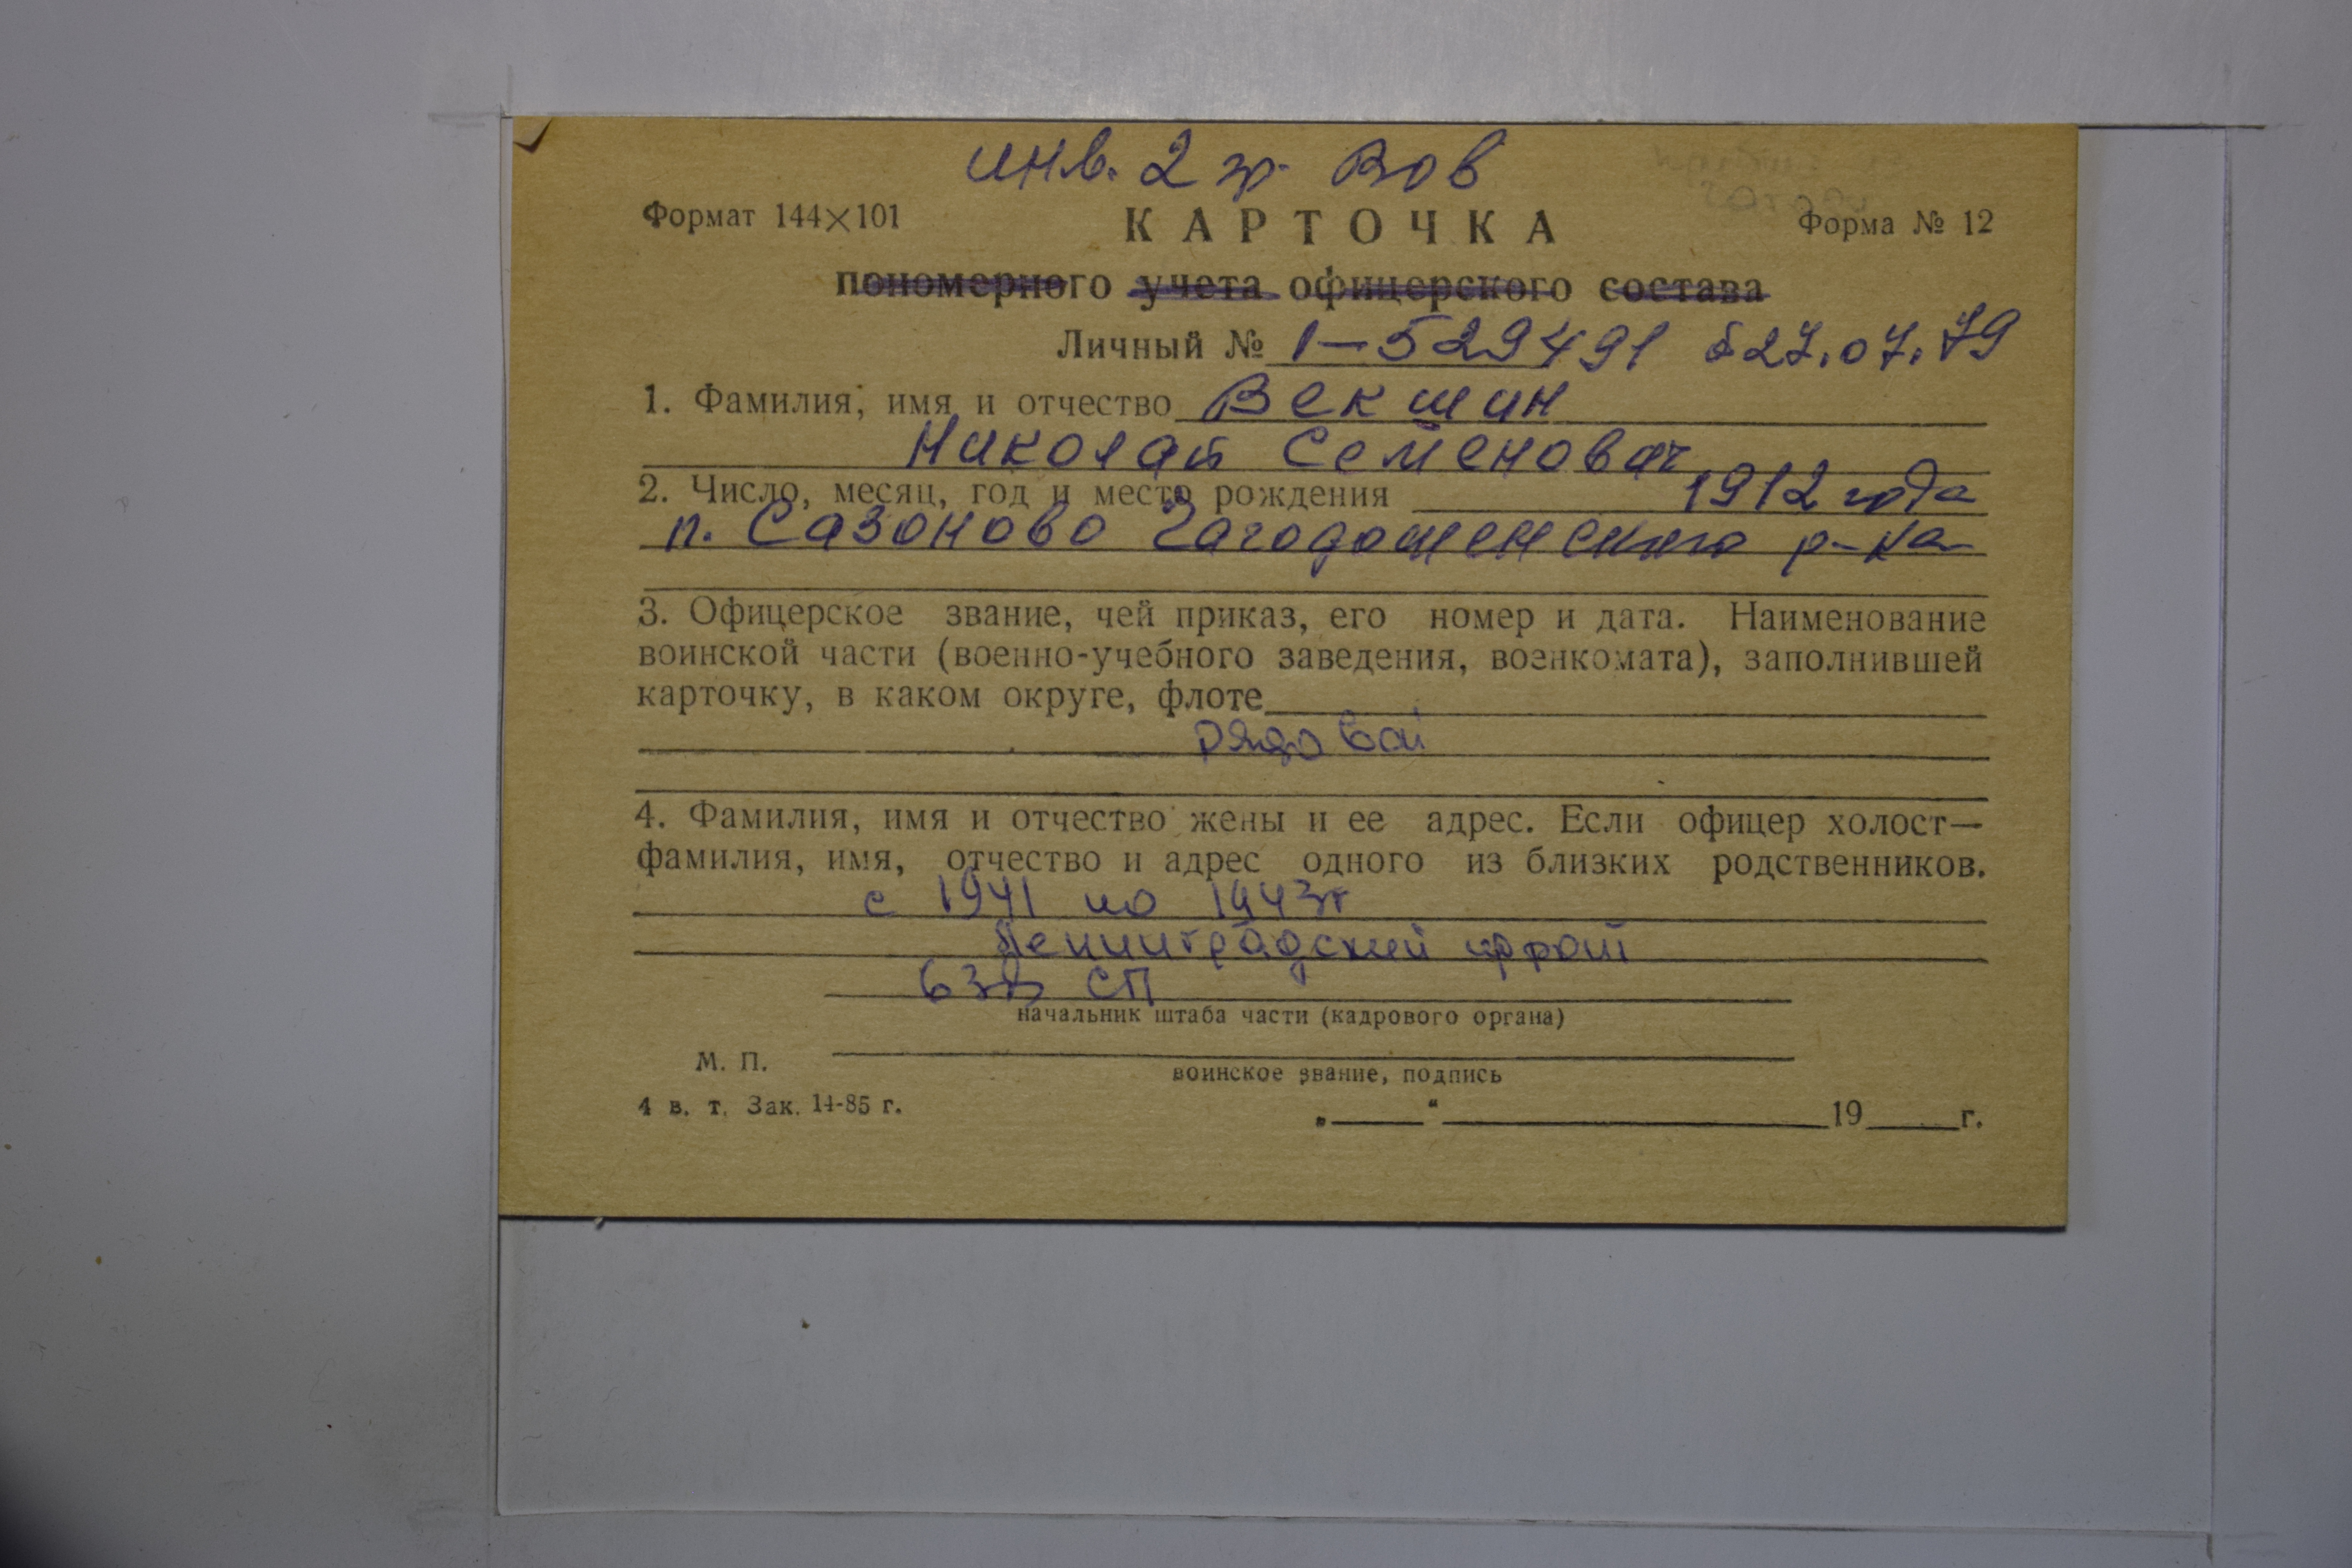 инв. 2 гр. ВОВ
Формат 144×101
КАРТОЧКА
Форма № 12
пономерного учета офицерского состава
Личный № 1-529491 б 27.07.79
1. Фамилия, имя и отчество Векшин
Николай Семенович
2. Число, месяц, год и место рождения 1912 года
п. Сазоново Чагодощенского р-на
3. Офицерское звание, чей приказ, его номер и дата. Наименование
воинской части (военно-учебного заведения, военкомата), заполнившей
карточку, в каком округе, флоте
рядовой
4. Фамилия, имя и отчество жены и ее адрес. Если офицер холост—
фамилия, имя, отчество и адрес одного из близких родственников.
с 1941 по 1943г
Ленинградский фронт
СП
начальник штаба части (кадрового органа)
М. П.
воинское звание, подпись
4 в. т. Зак. 14-85 г.
„ “ 19 г.